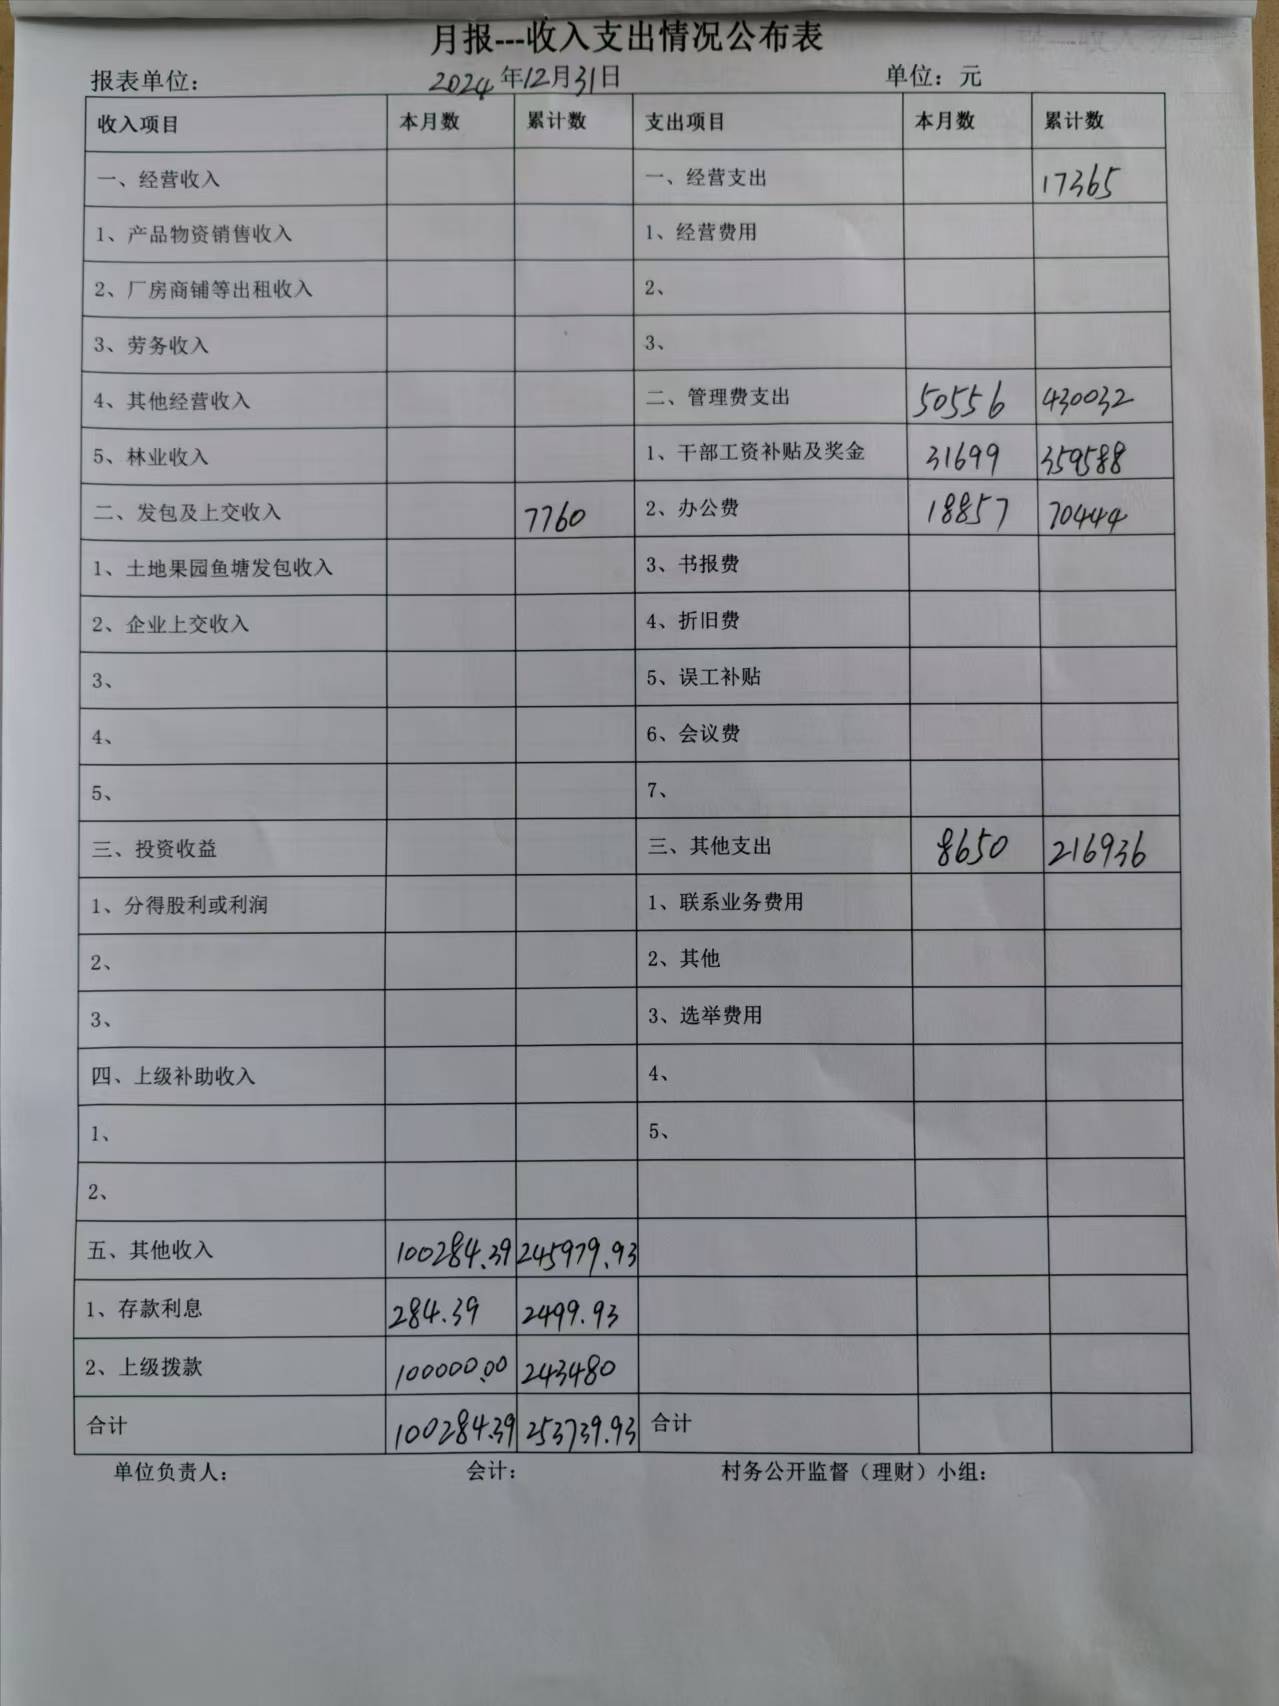 月报---收入支出情况公布表
报表单位： 2024年12月31日 单位：元
收入项目 本月数 累计数 支出项目 本月数 累计数
一、经营收入 一、经营支出 17365
1、产品物资销售收入 1、经营费用
2、厂房商铺等出租收入 2、
3、劳务收入 3、
4、其他经营收入 二、管理费支出 50556 430032
5、林业收入 1、干部工资补贴及奖金 31699 359588
二、发包及上交收入 7760 2、办公费 18857 70444
1、土地果园鱼塘发包收入 3、书报费
2、企业上交收入 4、折旧费
3、 5、误工补贴
4、 6、会议费
5、 7、
三、投资收益 三、其他支出 8650 216936
1、分得股利或利润 1、联系业务费用
2、 2、其他
3、 3、选举费用
四、上级补助收入 4、
1、 5、
2、
五、其他收入 100284.39 245979.93
1、存款利息 284.39 2499.93
2、上级拨款 100000.00 243480
合计 100284.39 253739.93 合计
单位负责人： 会计： 村务公开监督（理财）小组：